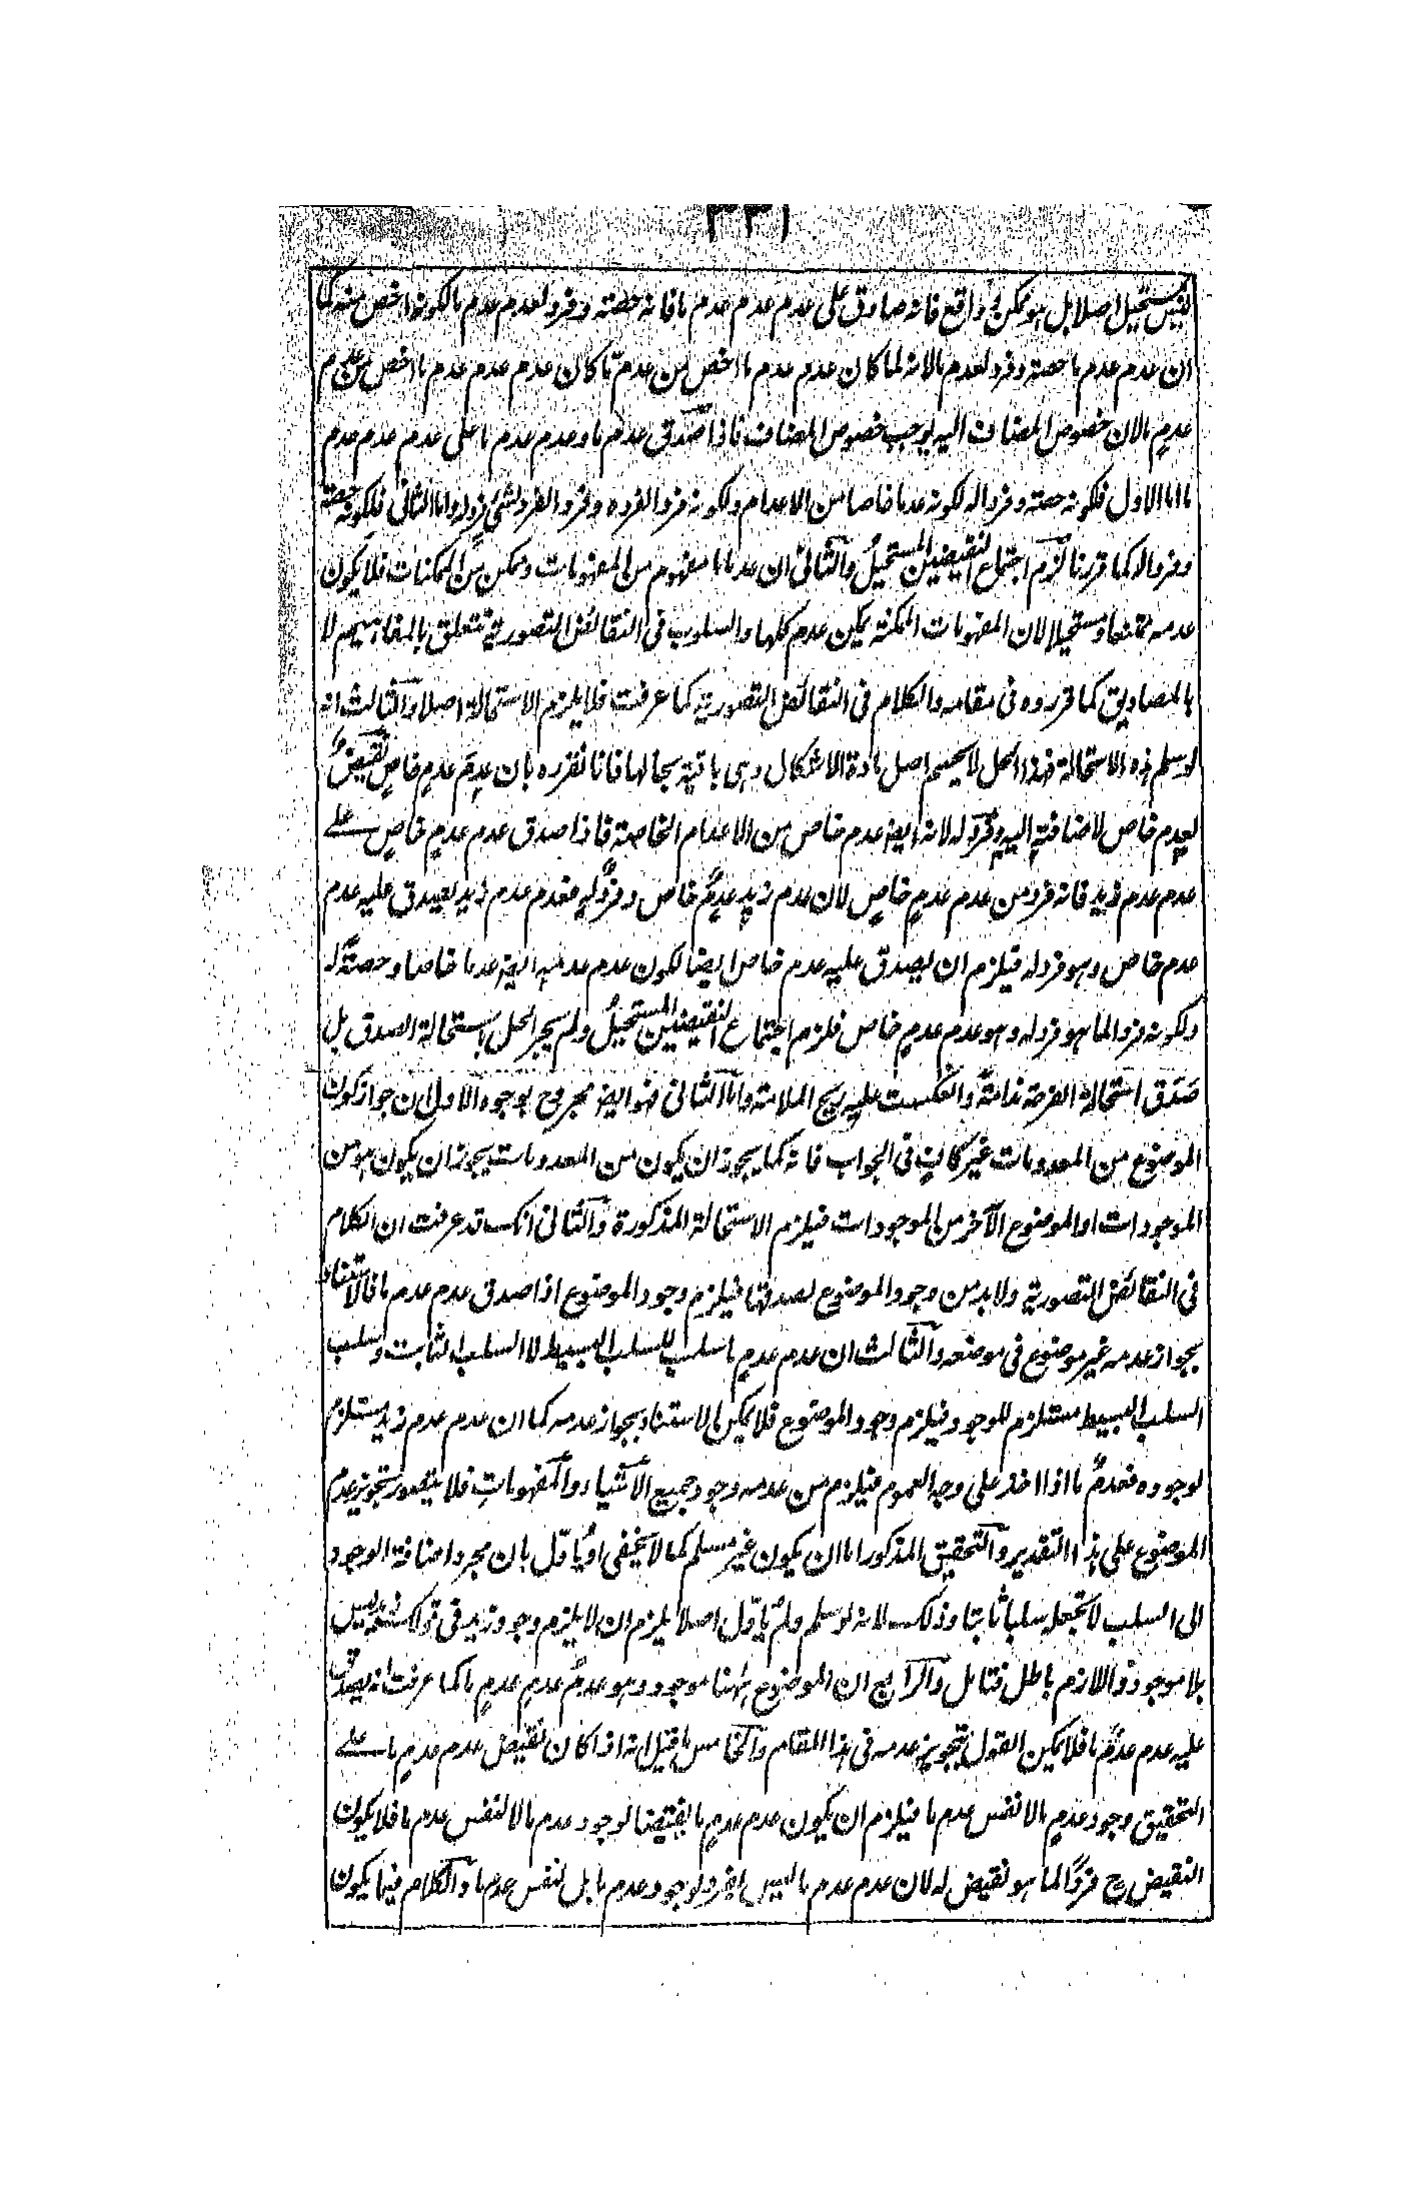 ٣٣١
ليس بمستحيل اصلا بل هو ممكن بل واقع فانه صادق على عدم عدم عدم ما فانه حصته وفرد لعدم عدم ما لكونه اخص منه كما
ان عدم عدم ما حصته وفرد لعدم ما لانه لما كان عدم عدم ما اخص من عدم ما كان عدم عدم عدم ما اخص من عدم
عدم ما لان خصوص المضاف اليه يوجب خصوص المضاف فاذا صدق عدم ما وعدم عدم ما على عدم عدم عدم
ما اما الاول فلكونه حصته وفردا له لكونه عدما خاصا من الاعدام ولكونه فردا لفرده وفرد الفرد لشئ فرد له واما الثاني فلكونه حصته
وفردا له كما قررنا لزم اجتماع النقيضين المستحيل والثاني ان عدم ما مفهوم من المفهومات وممكن من الممكنات فلا يكون
عدمه ممتنعا ومستحيلا لان المفهومات الممكنة يمكن عدم كلها والسلوب في النقائض التصورية تتعلق بالمفاهيم لا
بالمصاديق كما قرروه في مقامه والكلام في النقائض التصورية كما عرفت فلا يلزم الاستحالة اصلا والثالث انه
لو سلم هذه الاستحالة فهذا الحل لا يحسم اصل مادة الاشكال وهي باقية بحالها فانا نقرره بان عدم عدم خاص نقيض
لعدم خاص لاضافته اليه وفرد له لانه ايضا عدم خاص من الاعدام الخاصة فاذا صدق عدم عدم خاص على
عدم عدم زيد فانه فرد من عدم عدم خاص لان عدم زيد عدم خاص وفرد له فعدم عدم زيد يصدق عليه عدم
عدم خاص وهو فرد له فيلزم ان يصدق عليه عدم خاص ايضا لكون عدم عدمه ايضا عدما خاصا وحصة له
ولكونه فردا لما هو فرد له وهو عدم عدم خاص فلزم اجتماع النقيضين المستحيل ولم يجر الحل باستحالة الصدق بل
صدق استحالة الفرحة ندامة وانعكست عليه ريح الملامة واما الثاني فهو ايضا مجروح بوجوه الاول ان جواز كون
الموضوع من المعدومات غير كاف في الجواب فانه كما يجوز ان يكون من المعدومات يجوز ان يكون هو من
الموجودات او الموضوع الآخر من الموجودات فيلزم الاستحالة المذكورة والثاني انك قد عرفت ان الكلام
في النقائض التصورية ولا بد من وجود الموضوع لصدقها فيلزم وجود الموضوع اذا صدق عدم عدم ما فالاستناد
بجواز عدمه غير موضوع في موضعه والثالث ان عدم عدم ما سلب للسلب البسيط لا السلب الثابت وسلب
السلب البسيط مستلزم للوجود فيلزم وجود الموضوع فلا يمكن الاستناد بجواز عدمه كما ان عدم عدم زيد مستلزم
لوجوده فعدم ما اذا اخذ على وجه العموم فيلزم من عدمه وجود جميع الاشياء والمفهومات فلا يتصور تجويز عدم
الموضوع على هذا التقدير والتحقيق المذكور اما ان يكون غير مسلم كما لا يخفى او يأول بان مجرد اضافة الوجود
الى السلب لا تجعله سلبا ثابتا وذلك لانه لو سلم ولم يأول اصلا يلزم ان لا يلزم وجود زيد في قولك زيد ليس
بلا موجود واللازم باطل فتامل والرابع ان الموضوع ههنا موجود وهو عدم عدم عدم ما كما عرفت انه يصدق
عليه عدم عدم ما فلا يمكن القول بتجويز عدمه في هذا المقام والخامس ما قيل انه اذا كان نقيض عدم عدم ما على
التحقيق وجود عدم ما لا نفس عدم ما فيلزم ان يكون عدم عدم ما نقيضا لوجود عدم ما لا لنفس عدم ما فلا يكون
النقيض ح فردا لما هو نقيض له لان عدم عدم ما ليس بفرد لوجود عدم ما بل لنفس عدم ما والكلام فيما يكون